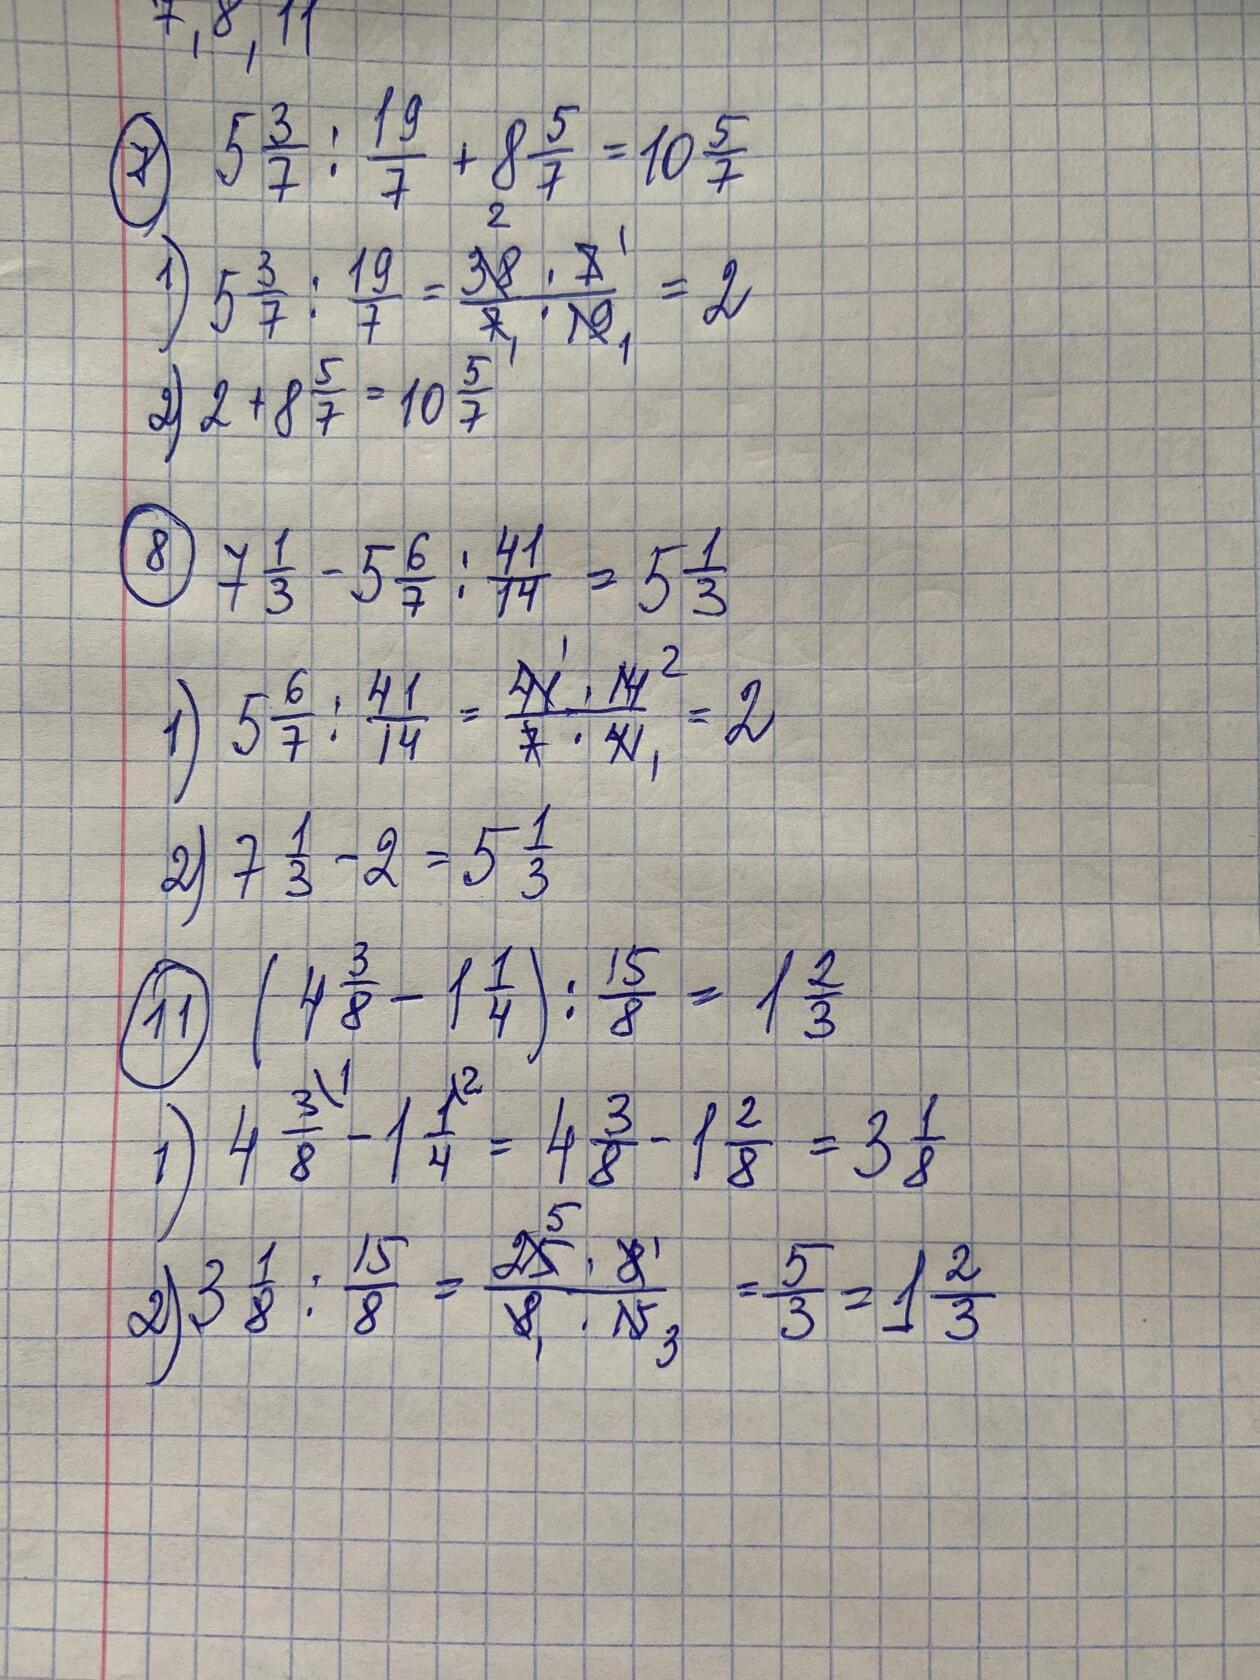 7, 8, 11
7 5 3/7 : 19/7 + 8 5/7 = 10 5/7
1) 5 3/7 : 19/7 = 38 2 · 7 1 / 7 1 · 19 1 = 2
2) 2 + 8 5/7 = 10 5/7
8 7 1/3 - 5 6/7 : 41/14 = 5 1/3
1) 5 6/7 : 41/14 = 41 1 · 14 2 / 7 · 41 1 = 2
2) 7 1/3 - 2 = 5 1/3
11 (4 3/8 - 1 1/4) : 15/8 = 1 2/3
1) 4 3/8 \1 - 1 1/4 \2 = 4 3/8 - 1 2/8 = 3 1/8
2) 3 1/8 : 15/8 = 25 5 · 8 1 / 8 1 · 15 3 = 5/3 = 1 2/3